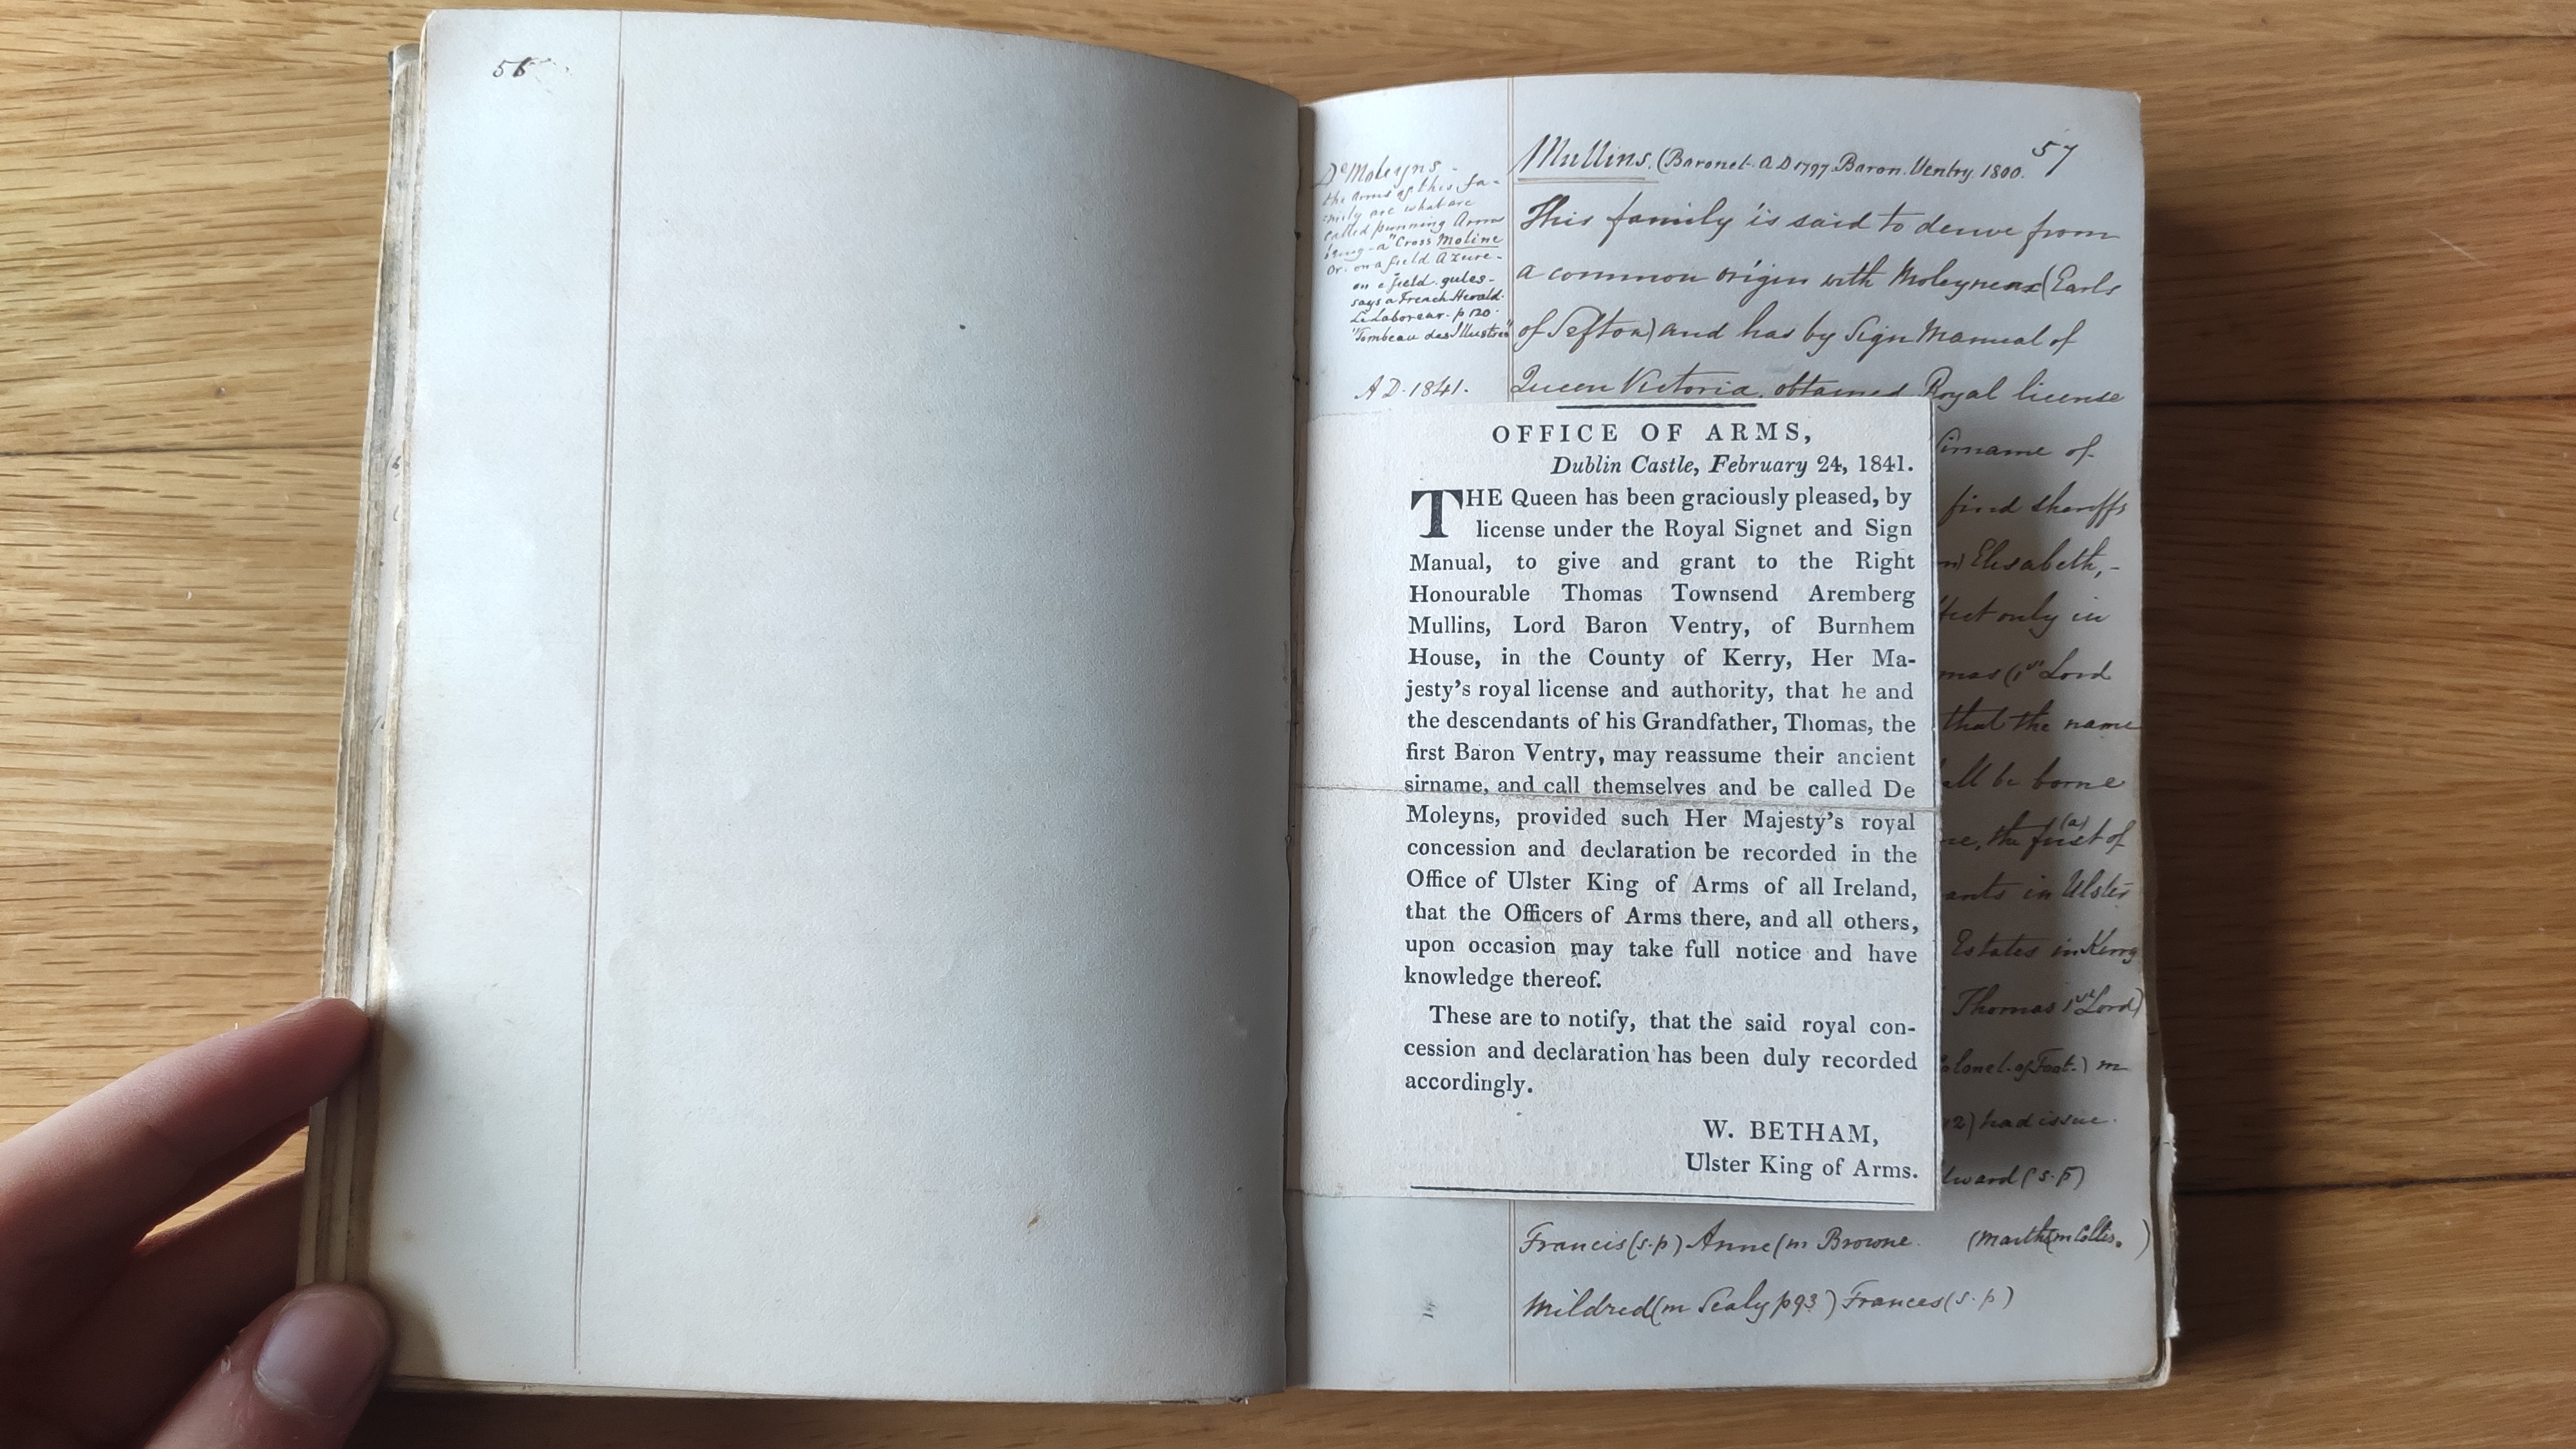 56
57
Mullins. (Baronet. A D 1797. Baron. Ventry. 1800.
This family is said to derive from
a common origin with Moleyneux (Earls
of Sefton) and has by Sign Manual of
Queen Victoria, obtained Royal license
De Moleyns -
the Arms of this fa-
-mily are what are
called punning Arms
being - a "Cross Moline
Or. on a field Azure -
on a field. gules -
says a French Herald.
Le Laboreur. p 120.
"Tombeau des Illustres"
A D. 1841.
OFFICE OF ARMS,
Dublin Castle, February 24, 1841.
THE Queen has been graciously pleased, by
license under the Royal Signet and Sign
Manual, to give and grant to the Right
Honourable Thomas Townsend Aremberg
Mullins, Lord Baron Ventry, of Burnhem
House, in the County of Kerry, Her Ma-
jesty's royal license and authority, that he and
the descendants of his Grandfather, Thomas, the
first Baron Ventry, may reassume their ancient
sirname, and call themselves and be called De
Moleyns, provided such Her Majesty's royal
concession and declaration be recorded in the
Office of Ulster King of Arms of all Ireland,
that the Officers of Arms there, and all others,
upon occasion may take full notice and have
knowledge thereof.
These are to notify, that the said royal con-
cession and declaration has been duly recorded
accordingly.
W. BETHAM,
Ulster King of Arms.
Sirname of
find sheriffs
Elisabeth, -
only in
(1st Lord
that the name
all be borne
the first (a) of
in Ulster
Estates in Kerry
Thomas 1st Lord)
of Foot.) m
had issue.
(s. p)
Francis (s. p) Anne (m Browne. (Martha m Collis. )
Mildred (m Sealy p 93 ) Frances (s. p)